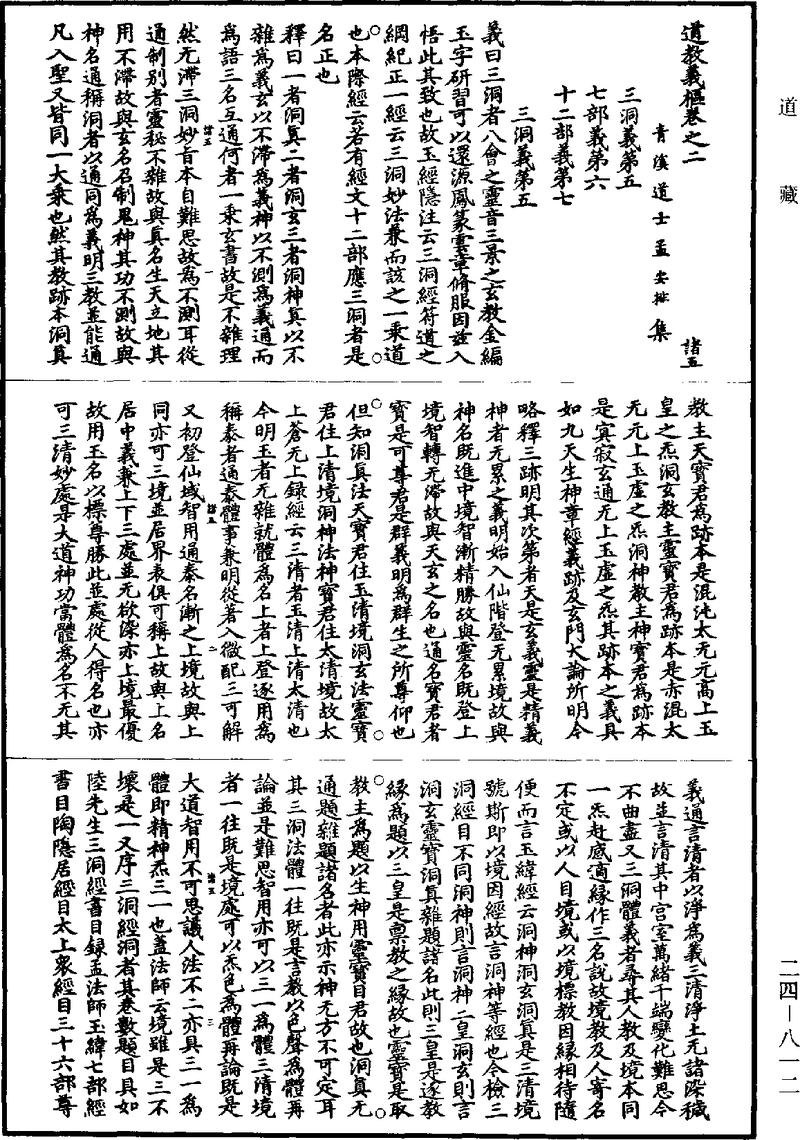 道藏
道教義樞卷之二
諸五
青溪道士孟安排集
三洞義第五
七部義第六
十二部義第七
三洞義第五
義曰三洞者八會之靈音三景之玄教金編
玉字研習可以還源鳳篆雲章脩服因玆入
悟此其致也故玉經隱注云三洞經符道之
綱紀正一經云三洞妙法兼而該之一乘道
也本際經云若有經文十二部應三洞者是
名正也
釋曰一者洞真二者洞玄三者洞神真以不
雜為義玄以不滯為義神以不測為義通而
為語三名互通何者一乘玄書故是不雜理
然无滯三洞妙旨本自難思故為不測耳從
通制別者靈秘不雜故與真名生天立地其
用不滯故與玄名召制鬼神其功不測故與
神名通稱洞者以通同為義明三教並能通
凡入聖又皆同一大乘也然其教跡本洞真
教主天寶君為跡本是混沌太无元高上玉
皇之炁洞玄教主靈寶君為跡本是赤混太
无元上玉虛之炁洞神教主神寶君為跡本
是冥寂玄通无上玉虛之炁其跡本之義具
如九天生神章經義跡及玄門大論所明今
略釋三跡明其次第者天是玄義靈是精義
神者无累之義明始入仙階登无累境故與
神名既進中境智漸精勝故與靈名既登上
境智轉无滯故與天玄之名也通名寶君者
寶是可尊君是群義明為群生之所尊仰也
但知洞真法天寶君住玉清境洞玄法靈寶
君住上清境洞神法神寶君住太清境故太
上蒼元上録經云三清者玉清上清太清也
今明玉者无雜就體為名上者上登逐用為
稱泰者通泰體事兼明從著入微配三可解
又初登仙域智用通泰名漸之上境故與上
同亦可三境並居界表俱可稱上故與上名
居中義兼上下三處並无欲染亦上境最優
故用玉名以標尊勝此並處從人得名也亦
可三清妙處是大道神功當體為名不无其
義通言清者以淨為義三清淨土无諸染穢
故並言清其中宮室萬緒千端變化難思今
不曲盡又三洞體義者尋其人教及境本同
一炁赴感適緣作三名說故境教及人寄名
不定或以人目境或以境標教因緣相待隨
便而言玉緯經云洞神洞玄洞真是三清境
號斯即以境因經故言洞神等經也今檢三
洞經目不同洞神則言洞神三皇洞玄則言
洞玄靈寶洞真雜題諸名此則三皇是逐教
緣為題以三皇是稟教之緣故也靈寶是取
教主為題以生神用靈寶目君故也洞真无
通題雜題諸名者此亦示神无方不可定耳
其三洞法體一往既是言教以色聲為體再
論並是難思智用亦可以三一為體三清境
者一往既是境處可以炁色為體再論既是
大道智用不可思議人法不二亦具三一為
體即精神炁三一也蓋法師云境雖是三不
壞是一又序三洞經洞者其卷數題目具如
陸先生三洞經書目録孟法師玉緯七部經
書目陶隱居經目太上衆經目三十六部尊
諸五
一
諸五
二
諸五
三
二四—八一二